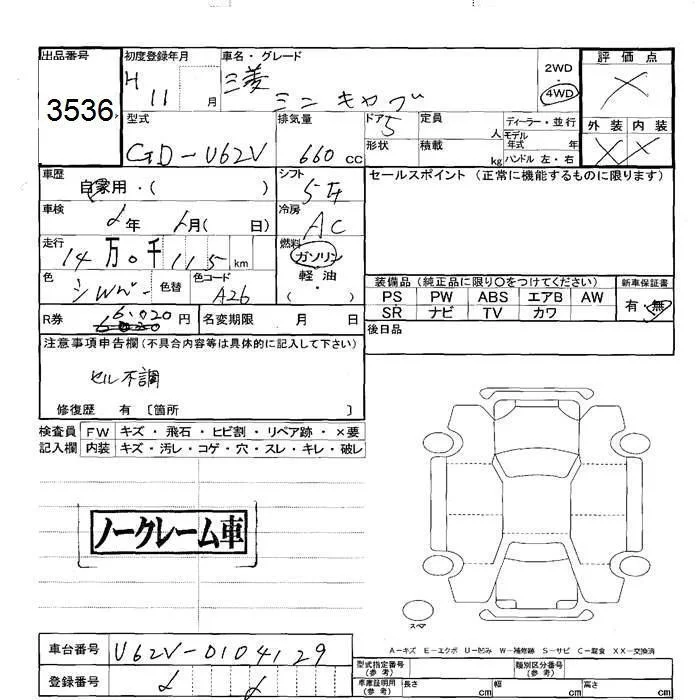 出品番号
3536
初度登録年月
H 11 月
車名・グレード
三菱
ミニキャブ
2WD
・
4WD
評価点
×
型式
GD-U62V
排気量
660 cc
ドア
5
定員
人
形状
積載
kg
ディーラー・並行
モデル年式 年
ハンドル 左・右
外装 内装
× ×
車歴
自家用・( )
シフト
5F
セールスポイント (正常に機能するものに限ります)
車検
年 月( 日)
冷房
AC
走行
14万0千115km
燃料
ガソリン
・
軽油
( )
色
シルバー
色替
色コード
A26
装備品 (純正品に限り○をつけてください)
PS PW ABS エアB AW
SR ナビ TV カワ
新車保証書
有・無
R券
6.020 円
6020
名変期限 月 日
後日品
注意事項申告欄(不具合内容等は具体的に記入して下さい)
セル不調
修復歴 有 〔箇所 〕
検査員 FW キズ・飛石・ヒビ割・リペア跡・×要
記入欄 内装 キズ・汚レ・コゲ・穴・スレ・キレ・破レ
ノークレーム車
スペア
A-キズ E-エクボ U-凹み W-補修跡 S-サビ C-腐食 XX-交換済
車台番号
U62V-0104129
登録番号
型式指定番号
(参考)
類別区分番号
(参考)
車庫証明用
(参考)
長さ cm 幅 cm 高さ cm